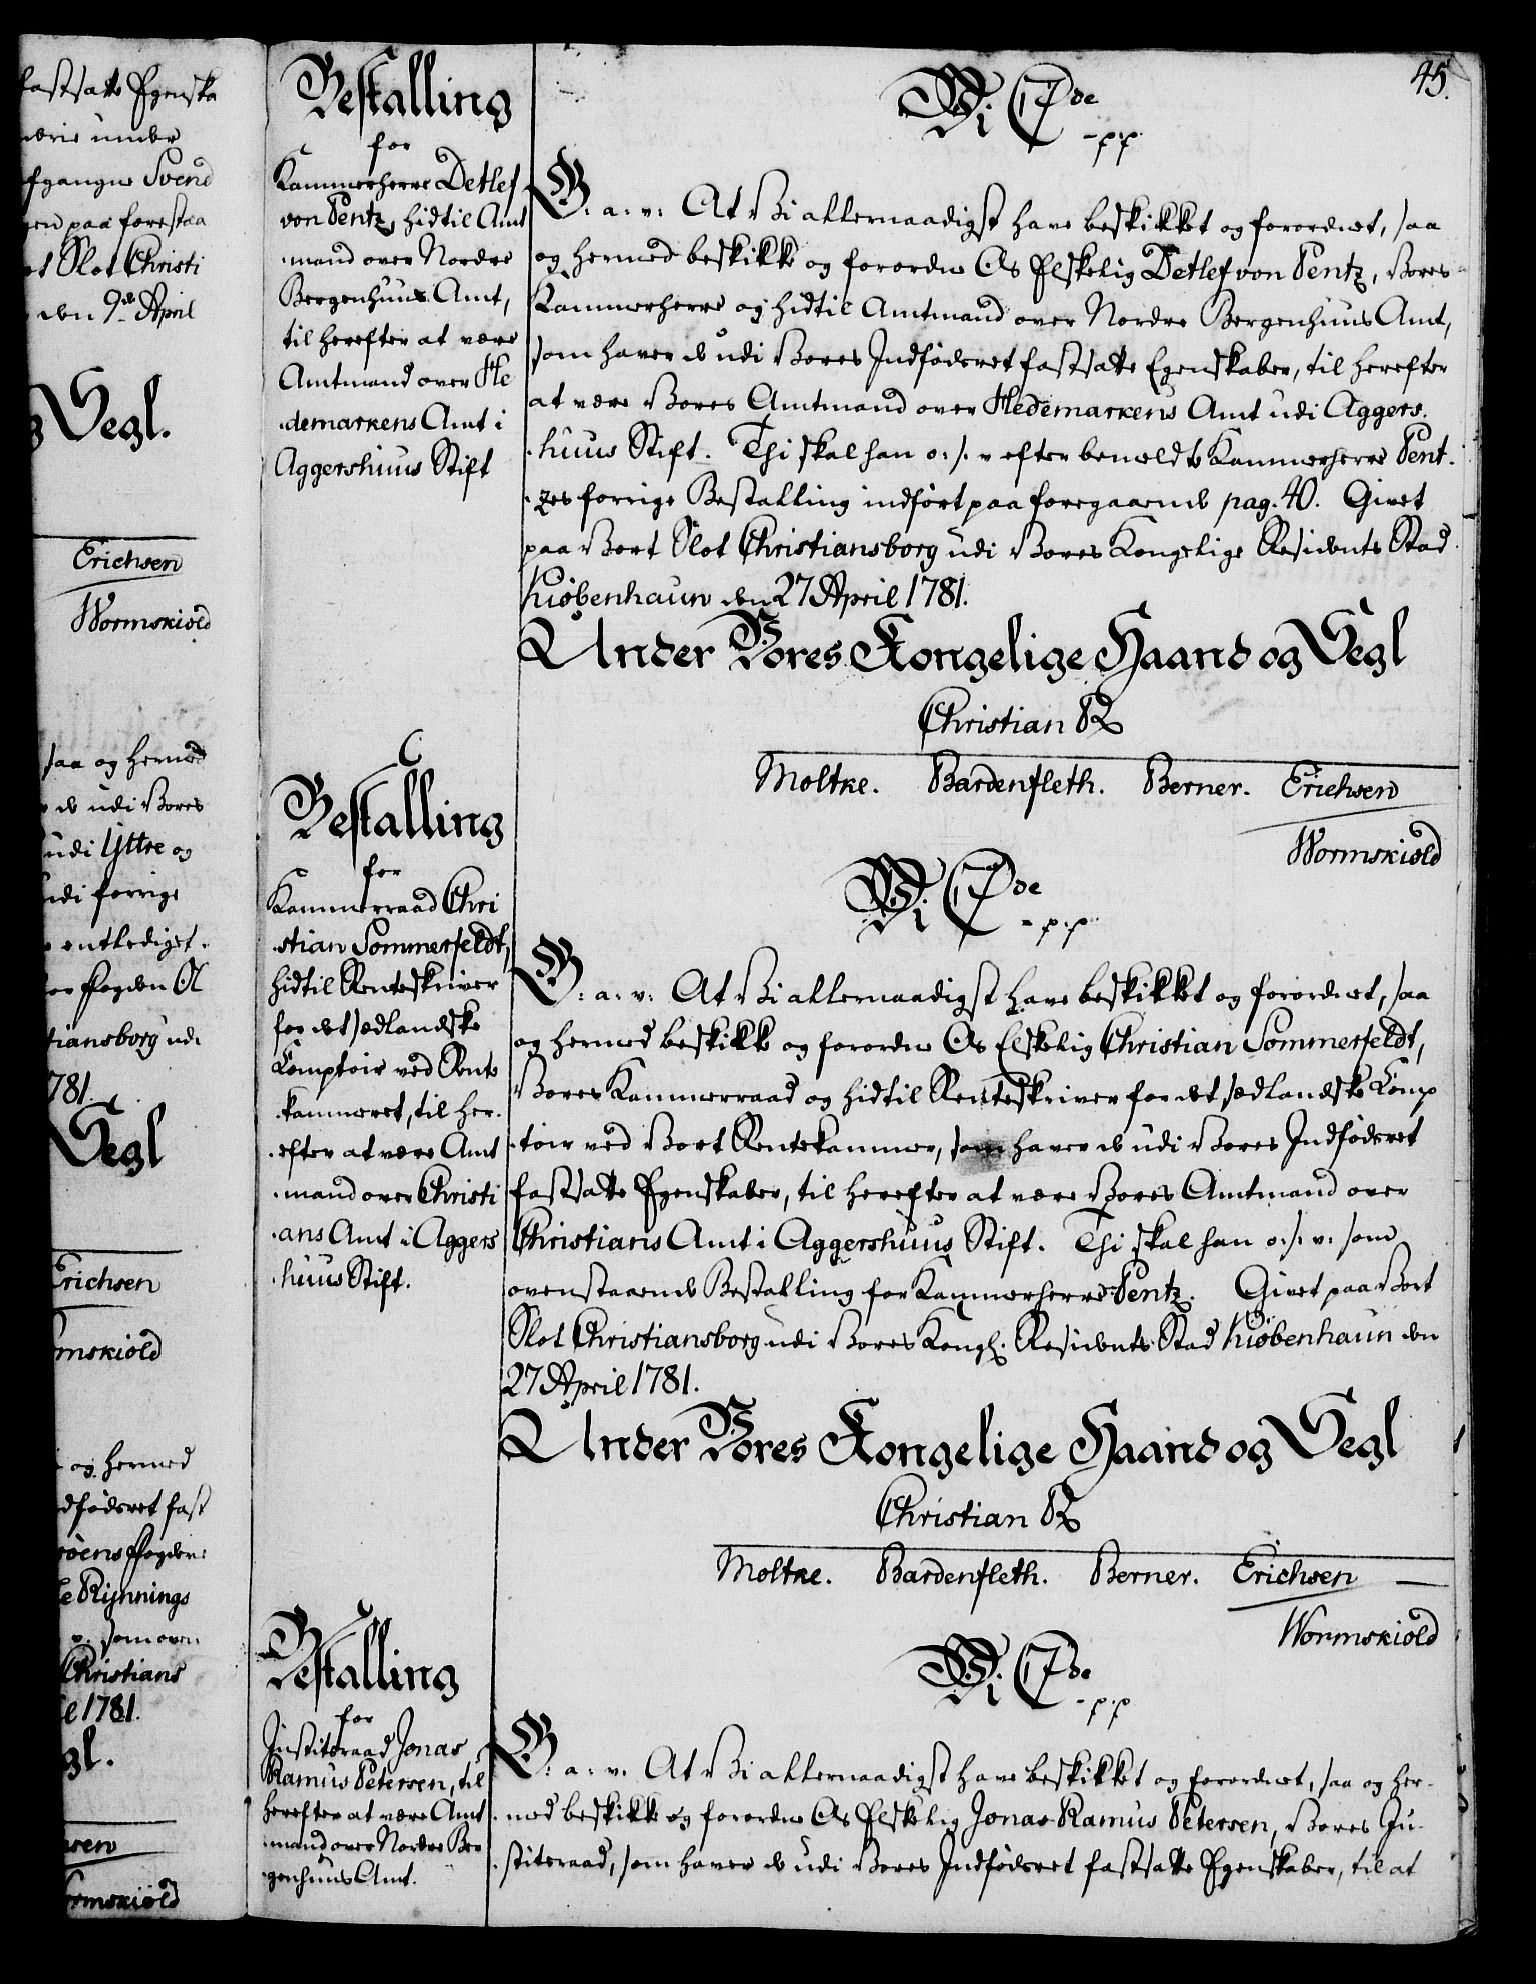 fastsatte Egenska
under
afgangne Svend
paa forestaa
Slot Christi
den 9de April
Segl.
Erichsen
Wormskiold
saa og hermed
de udi Vores
udi Yttre og
udi forrige
entlediget
Fogden Ol
tiansborg udi
781.
Segl
Erichsen
mskiold
og hermed
dfödsret fast
öens Fogden
Rijnnings
v. som oven
Christians
1781.
gl.
sen
ormskiold
45.
Bestalling
for
Kammerherre Detlef
von Pentz, hidtil Amt
-mand over Nordre
Bergenhuus Amt,
til herefter at være
Amtmand over He
-demarkens Amt i
Aggershuus Stift
Vi C 7de
-p.p.
G. a. v. At Vi allernaadigst have beskikket og forordnet, saa
og hermed beskikke og forordne Os Elskelig Detlef von Pentz, Vores
Kammerherre og hidtil Amtmand over Nordre Bergenhuus Amt,
som haver de udi Vores Indfödsret fastsatte Egenskaber, til herefter
at være Vores Amtmand over Hedemarkens Amt udi Aggers.
-huus Stift. Thi skal han o. s. v efter bemeldte Kammerherre Pent.
-zes forrige Bestalling indfört paa foregaaende pag. 40. Givet
paa Vort Slot Christiansborg udi Vores Kongelige Residents Stad
Kiöbenhaun den 27 April 1781.
Under Vores Kongelige Haand og Segl
Christian R
Moltke. Bardenfleth. Berner. Erichsen
Wormskiold
Bestalling
for
Kammerraad Chri
-stian Sommerfeldt,
hidtil Renteskriver
for det siællandske
Comptoir ved Rente
-kammeret, til her.
-efter at være Amt
-mand over Christi
-ans Amt i Aggers
-huus Stift.
Vi C 7de
-p.p.
G. a. v. At Vi allernaadigst have beskikket og forordnet, saa
og hermed beskikke og forordne Os Elskelig Christian Sommerfeldt,
Vores Kammerraad og hidtil Renteskriver for det siællandske Comp
-toir ved Vort Rentekammer, som haver de udi Vores Indfödsret
fastsatte Egenskaber, til herefter at være Vores Amtmand over
Christians Amt i Aggershuus Stift. Thi skal han o. s. v. som
ovenstaaende Bestalling for Kammerherre Pentz. Givet paa Vort
Slot Christiansborg udi Vores Kongl. Residents Stad Kiöbenhaun den
27 April 1781.
Under Vores Kongelige Haand og Segl
Christian R
Moltke. Bardenfleth. Berner. Erichsen
Wormskiold
Bestalling
for
Justitsraad Jonas
Ramus Petersen, til
herefter at være Amt
-mand over Nordre Ber
-genhuus Amt.
Vi C 7de
-p.p
G. a. v. At Vi allernaadigst have beskikket og forordnet, saa og her-
-med beskikke og forordne Os Elskelig Jonas Ramus Petersen, Vores Ju-
-stitsraad, som haver de udi Vores Indfödsret fastsatte Egenskaber, til at